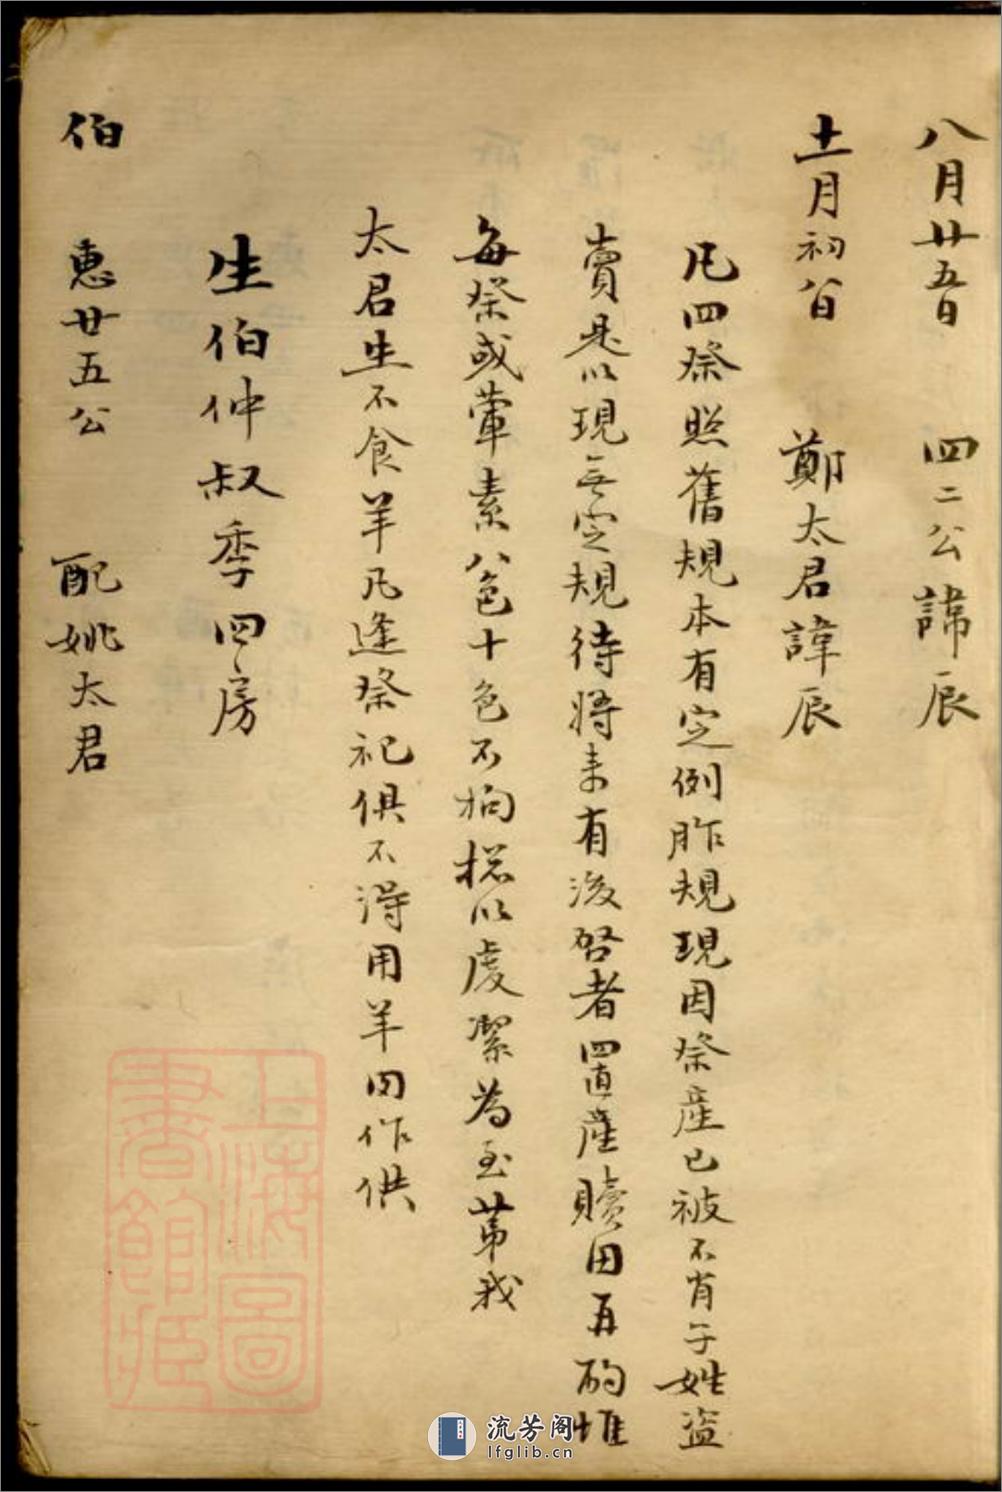 八月廿五日 四二公諱辰
十一月初八日 鄭太君諱辰
凡四祭照舊規本有定例昨規現因祭産已被不肖子姓盗
賣是以現無定規待將来有後啓者置産贖田再酌惟
每祭或葷素八色十色不拘摠以虔潔為至苐我
太君生不食羊凡逢祭祀俱不得用羊肉作供
生伯仲叔季四房
伯 惠廿五公 配姚太君
上海圖書館藏
流芳阁
lfglib.cn